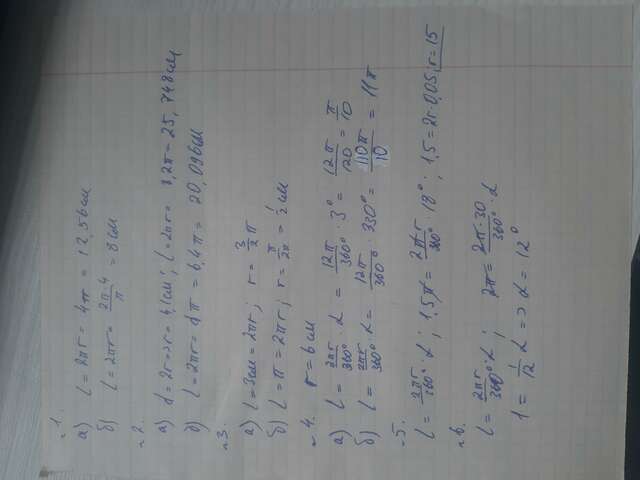 №1.
а) l = 2πr = 4π = 12,56 см
б) l = 2πr = 2π·4/π = 8 см
№2.
а) d = 2r => r = 4,1 см; l = 2πr = 8,2π = 25,748 см
б) l = 2πr = dπ = 6,4π = 20,096 см
№3.
а) l = 3 см = 2πr; r = 3/2 π
б) l = π = 2πr; r = π/2π = 1/2 см
№4. r = 6 см
а) l = 2πr/360° · α = 12π/360° · 3° = 12π/120 = π/10
б) l = 2πr/360° · α = 12π/360° · 330° = 110π/10 = 11π
№5.
l = 2πr/360° · α; 1,5π = 2πr/360° · 18°; 1,5 = 2r·0,05; r = 15
№6.
l = 2πr/360° · α; 2π = 2π·30/360° · α
1 = 1/12 α => α = 12°